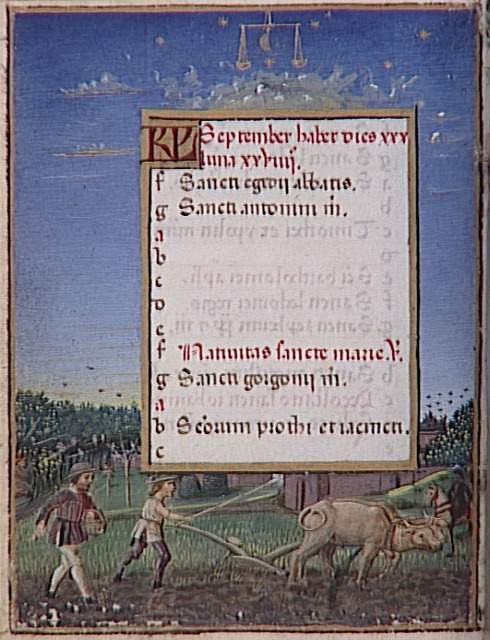 KL September habet dies xxx
luna xxviiij.
f Sancti egidij abbatis.
g Sancti antonini m̄.
a
b
c
d
e
f Nativitas sancte marie. V.
g Sancti gorgonij m̄.
a
b Sc̄orum prothi et iacincti.
c